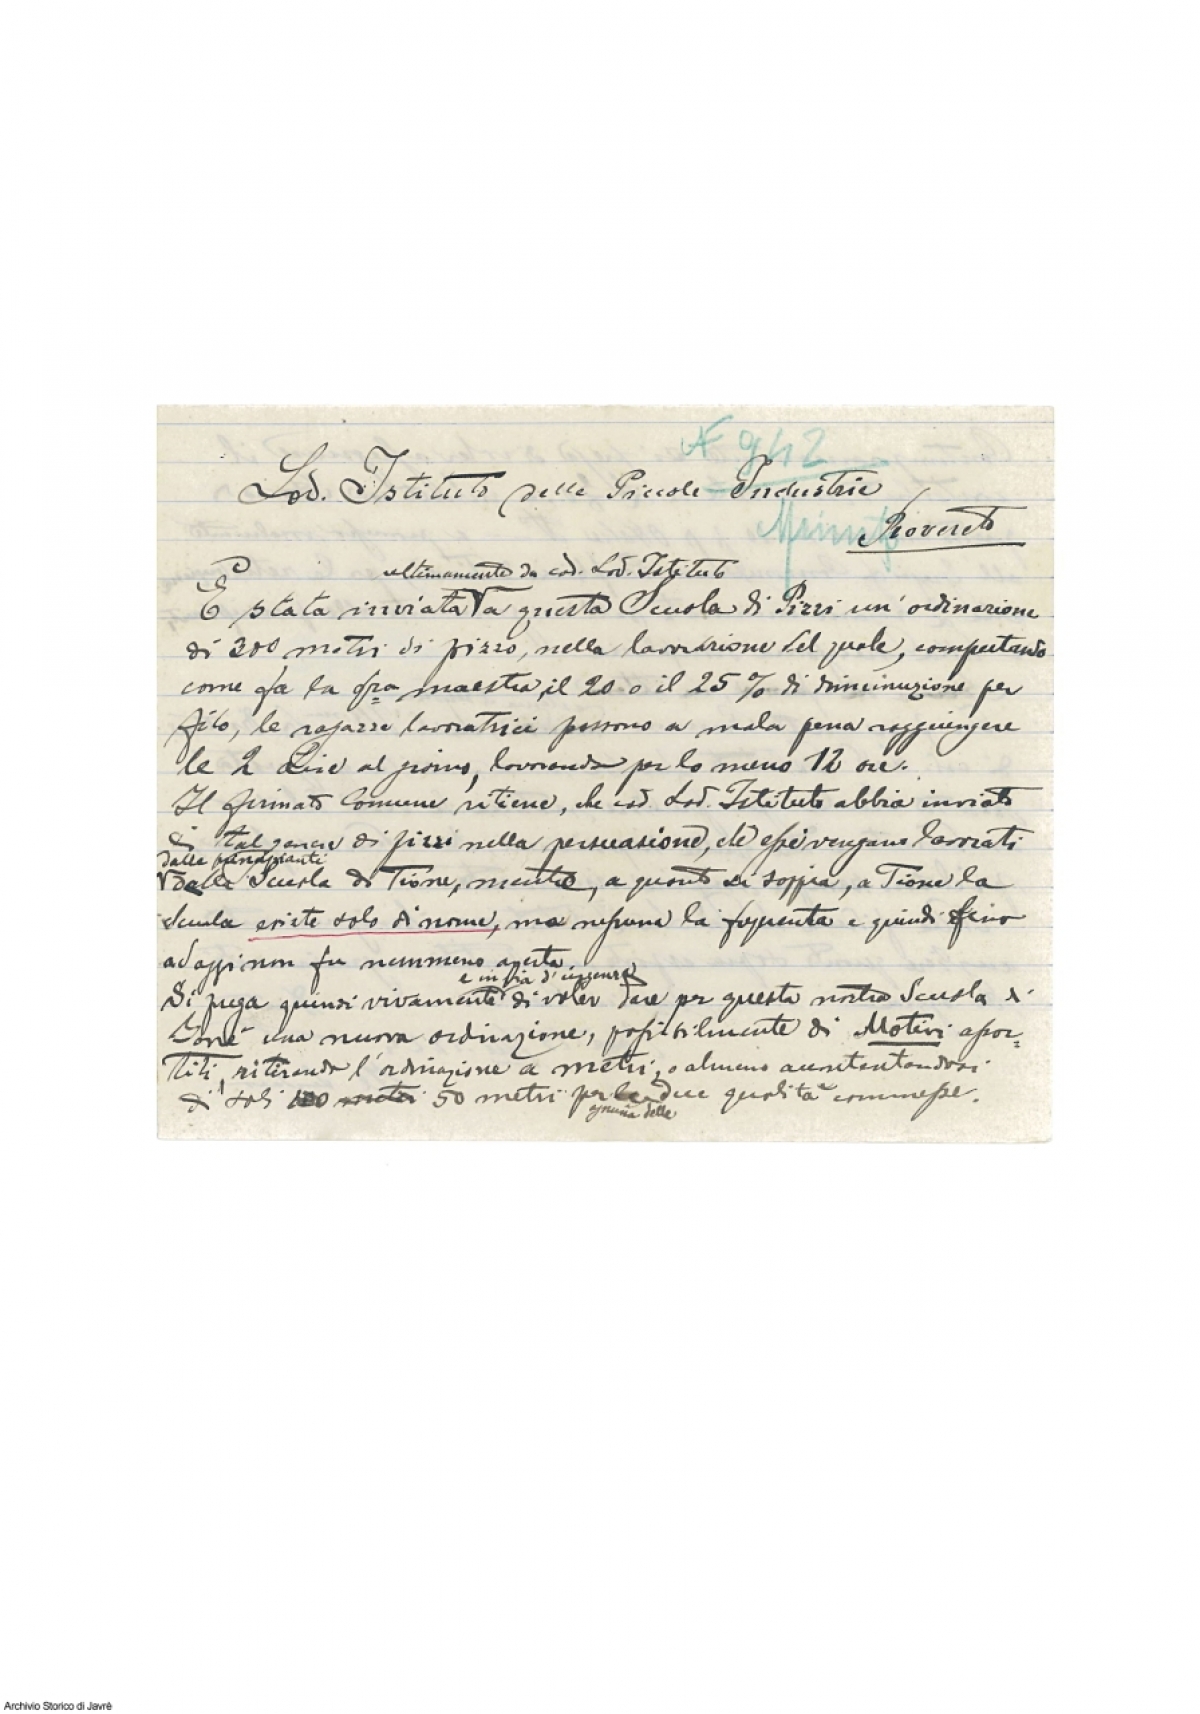 N 942
Lod. Istituto delle Piccole Industrie
Rovereto
ultimamente da cod. Lod. Istituto
È stata inviata a questa Scuola di Pizzi un' ordinazione
di 300 metri di pizzo, nella lavorazione del quale, computando
come fa la sig.ra maestra, il 20 o il 25 % di diminuzione per
filo, le ragazze lavoratrici possono a mala pena raggiungere
le 2 Lire al giorno, lavorando per lo meno 12 ore.
Il firmato Comune ritiene, che cod. Lod. Istituto abbia inviato
tal genere di pizzi nella persuasione, ch' essi vengano lavorati
dalle principianti
della Scuola di Tione, mentre, a quanto si sappia, a Tione la
Scuola esiste solo di nome, ma nessuna la frequenta e quindi fino
ad oggi non fu nemmeno aperta.
e in via d'urgenza
Si prega quindi vivamente di voler dare per questa nostra Scuola
una nuova ordinazione, possibilmente di Motivi assor-
titi, ritirando l'ordinazione a metri, o almeno accontentandosi
di soli 100 metri 50 metri per le due qualità commesse.
ognuna delle
Archivio Storico di Javrè